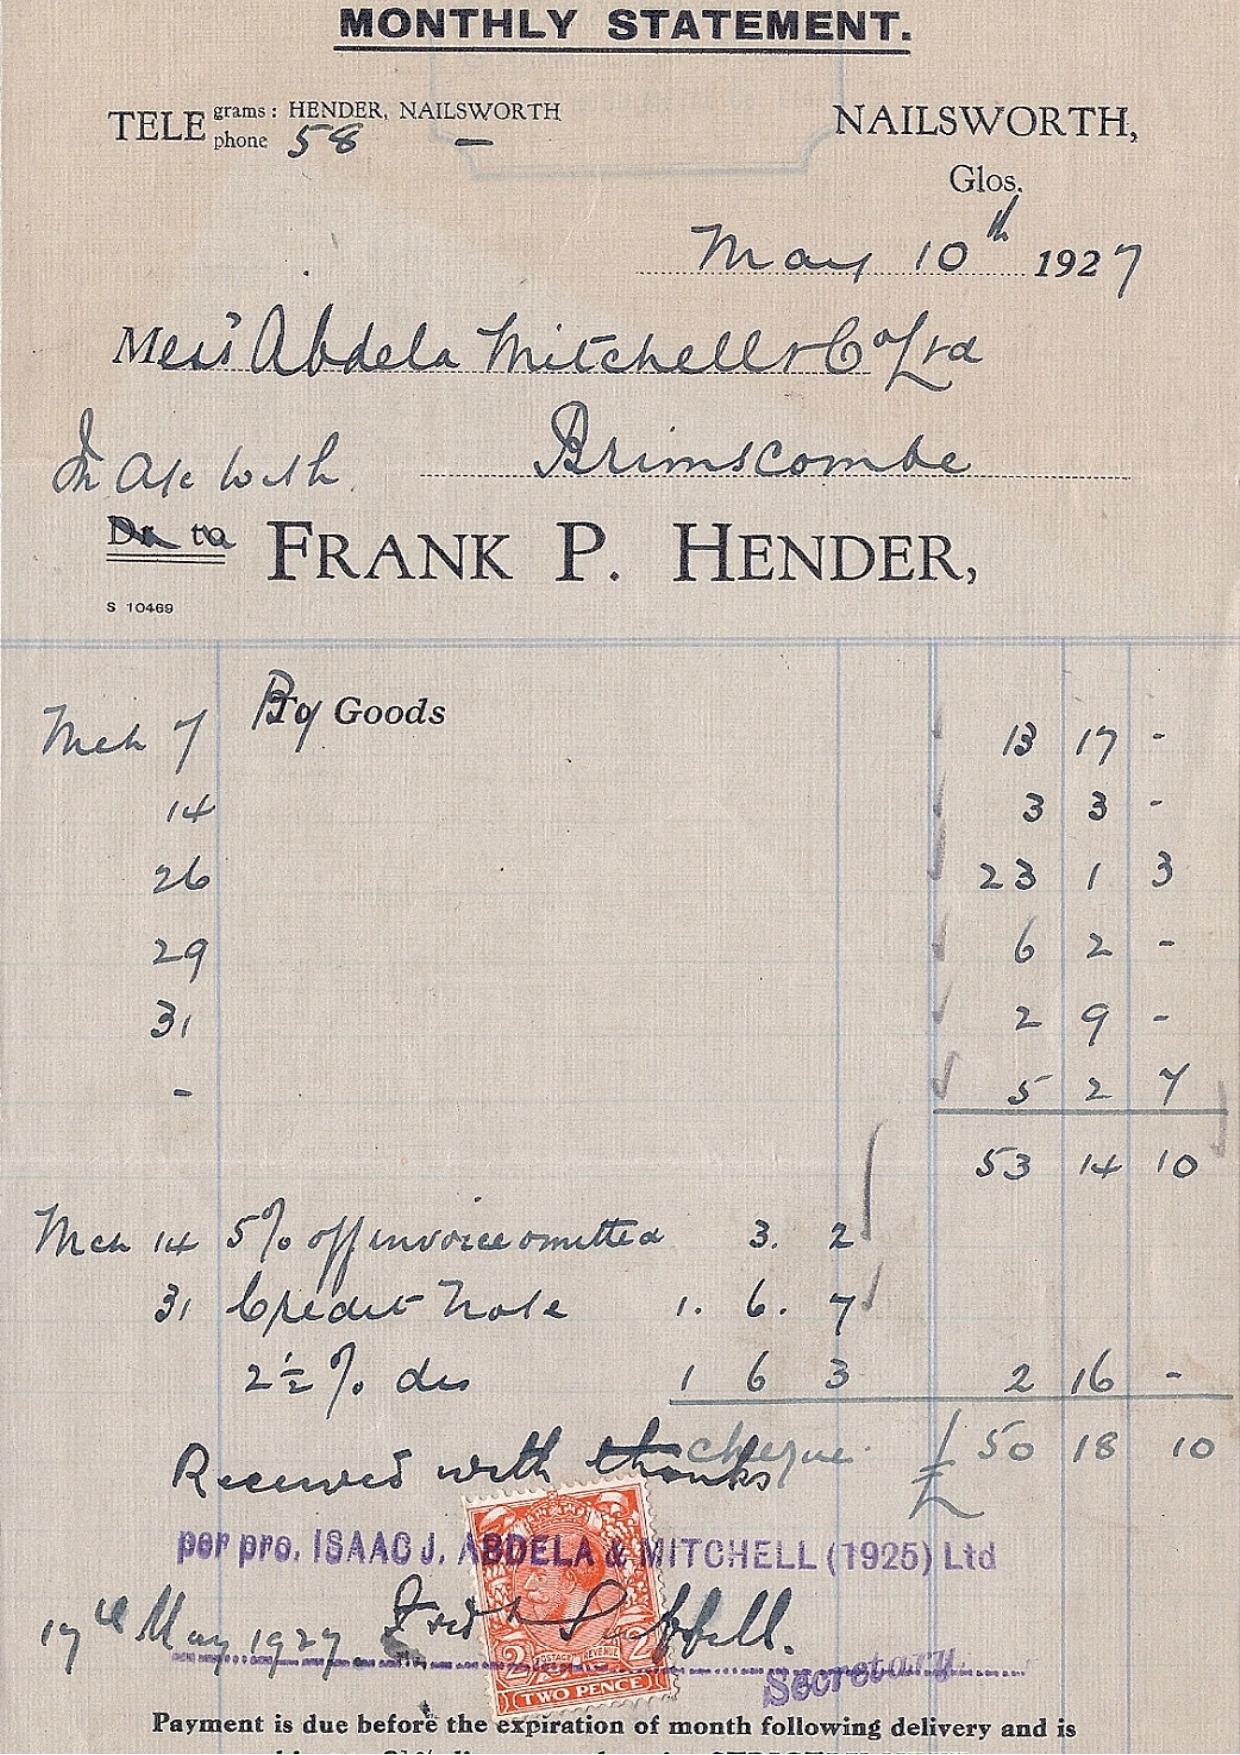 MONTHLY STATEMENT.
TELE grams: HENDER, NAILSWORTH
phone 58 —
NAILSWORTH,
Glos.
May 10th 1927
Messrs Abdela Mitchell & Co Ltd
Brimscombe
In a/c with
Dr. to FRANK P. HENDER,
S 10469
By Goods
Mch 7 13 17 -
14 3 3 -
26 23 1 3
29 6 2 -
31 2 9 -
- 5 2 7
53 14 10
Mch 14 5% off invoice omitted 3. 2
31 Credit Note 1. 6. 7
2½% dis 1 6 3 2 16 -
cheque £ 50 18 10
Received with thanks
per pro. ISAAC J. ABDELA & MITCHELL (1925) Ltd
17th May 1927 Fred
Secretary
POSTAGE REVENUE
2 2
TWO PENCE
Payment is due before the expiration of month following delivery and is